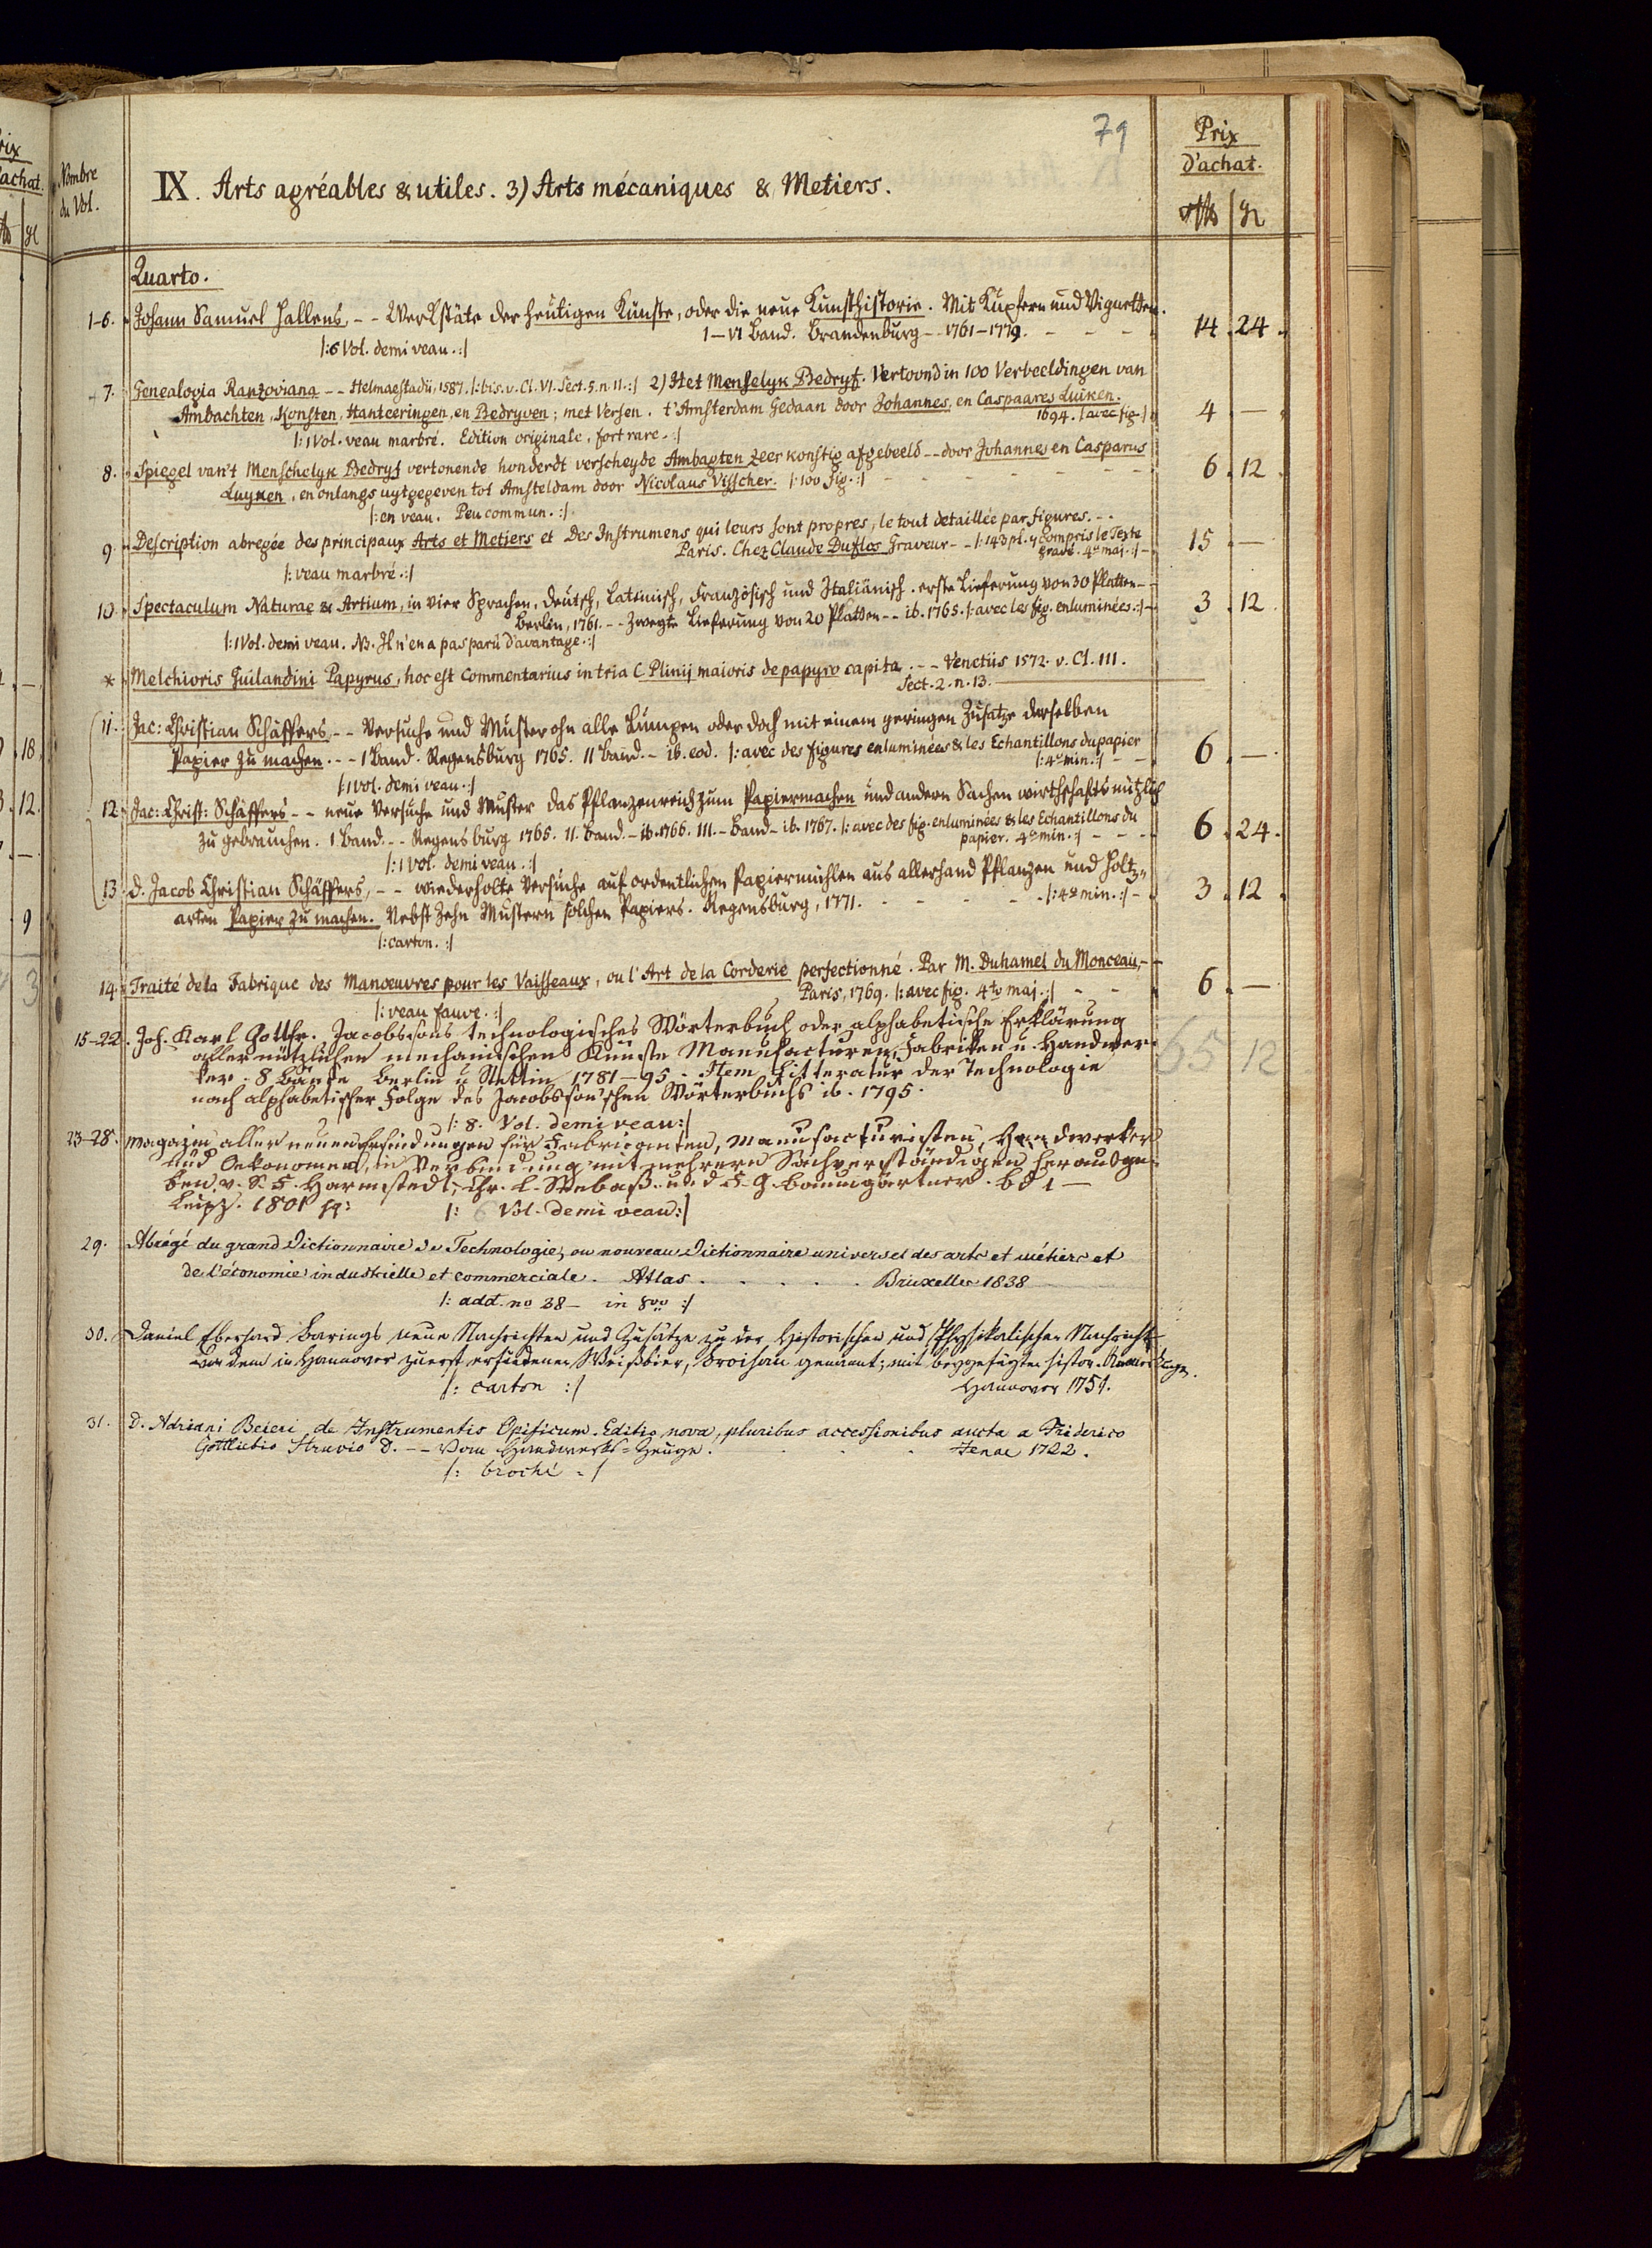 79
Prix
D'achat.
Nombre
du Vol.
IX. Arts agréables & utiles. 3) Arts mécaniques & Metiers.
Quarto.
1-6. Johann Samuel Hallens, -- Werkstäte der heutigen Künste, oder die neue Kunsthistorie. Mit Kupfern und Vignetten.
1-VI Band. Brandenburg -- 1761-1779. 14. 24.
|: 6 Vol. demi veau. :|
7. Genealogia Ranzoviana -- Helmaestadii, 1587. |: bis. v. Cl. VI. Sect. 5. n. 11. :| 2) Het Menselyk Bedryf. Vertoond in 100 Verbeeldingen van
Ambachten, Konsten, Hanteeringen, en Bedryven; met Versen. t'Amsterdam Gedaan door Johannes, en Caspaares Luiken.
1694. |avec fig.| 4 . —
|: 1 Vol. veau marbré. Edition originale, fort rare. :|
8. Spiegel van't Menschelyk Bedryf vertonende honderdt verscheyde Ambagten zeer konstig afgebeeld -- door Johannes en Casparus
Luyken, en onlangs uytgegeven tot Amsteldam door Nicolaus Visscher. |: 100 fig. :| 6. 12
|: en veau. Peu commun. :|
9. Description abregée des principaux Arts et Metiers et Des Instrumens qui leurs sont propres, le tout detaillée par figures. --
Paris. Chez Claude Duflos Graveur -- |: 143 pl. y compris le Texte
gravé. 4º maj. :| 15 —
|: veau marbré. :|
10. Spectaculum Naturae & Artium, in vier Sprachen, deutsch, Lateinisch, Französisch und Italiänisch. erste Lieferung von 30 Platten --
Berlin, 1761. -- Zweyte Lieferung von 20 Platten -- ib. 1765. |: avec les fig. enluminées. :| 3 . 12
|: 1 Vol. demi veau. NB. Il n'en a pas parû d'avantage. :|
* Melchioris Guilandini Papyrus, hoc est Commentarius in tria C Plinij maioris de papyro capita. -- Venetiis 1572. v. Cl. III.
Sect. 2. n. 13.
11. Jac: Christian Schäffers -- Versuche und Muster ohn alle Lumpen oder doch mit einem geringen Zusatze derselben
Papier zu machen. -- 1 Band. Regensburg 1765. 11 Band. - ib. eod. |: avec des figures enluminées & les Echantillons du papier
|: 4º min. :| 6 . —
|: 1 Vol. demi veau. :|
12. Jac: Christ: Schäffers -- neue Versuche und Muster das Pflanzenreich zum Papiermachen und andern Sachen wirthschaftsnützlich
zu gebrauchen. 1 Band. -- Regensburg 1765. 11. Band. - ib. 1766. III. - Band - ib. 1767. |: avec des fig. enluminées & les Echantillons du
papier. 4º min. :| 6 . 24.
|: 1 Vol. demi veau. :|
13. D. Jacob Christian Schäffers, -- wiederholte Versuche auf ordentlichen Papiermühlen aus allerhand Pflanzen und Holtz-
arten Papier zu machen. Nebst Zehn Mustern solchen Papiers. Regensburg, 1771. |: 4º min. :| 3 . 12 .
|: carton. :|
14. Traité de la Fabrique des Manoeuvres pour les Vaisseaux, ou l'Art de la Corderie perfectionné. Par M. Duhamel du Monceau, --
Paris, 1769. |: avec fig. 4to maj. :| 6 . —
|: veau fauve. :|
15-22. Joh. Karl Gottfr. Jacobssons technologisches Wörterbuch oder alphabetische Erklärung
aller nützlichen mechanischen Künste Manufacturen, Fabriken u. Handwer-
ker. 8 Bände Berlin u Stettin 1781-95. Item Litteratur der Technologie
nach alphabetischer Folge des Jacobsson'schen Wörterbuchs ib. 1795.
65 12
|: 8. Vol. demi veau :|
23-28. Magazin aller neuen Erfindungen für Fabricanten, Manufacturisten, Handwerker
und Oekonomen, in Verbindung mit mehrern Sachverständigen herausge-
ben v. S. F. Hermstedt, Chr. L. Seebaß u. d F. G. Baumgärtner. Bd 1 —
Leipz. 1801 sq: |: 6 Vol. demi veau :|
29. Abrégé du grand Dictionnaire de Technologie, ou nouveau Dictionnaire universel des arts et métiers et
de l'économie industrielle et commerciale. Atlas. . . . . . Bruxelles 1838
|: add. no 38 — in 8vo :|
30. Daniel Eberhard Barings neue Nachrichten und Zusätze zu der Historischen und Physikalischen Nachricht
von dem in Hannover zuerst erfundenen Weißbier, Broihan genannt; mit beygefügten histor. Anmerkungen.
|: carton :| Hannover 1751.
31. D. Adriani Beieri de Instrumentis Opificum. Editio nova, pluribus accessionibus aucta a Friderico
Gottliebio Struvio D. -- Vom Handwercks-Zeuge. Jenae 1722.
|: broché :|